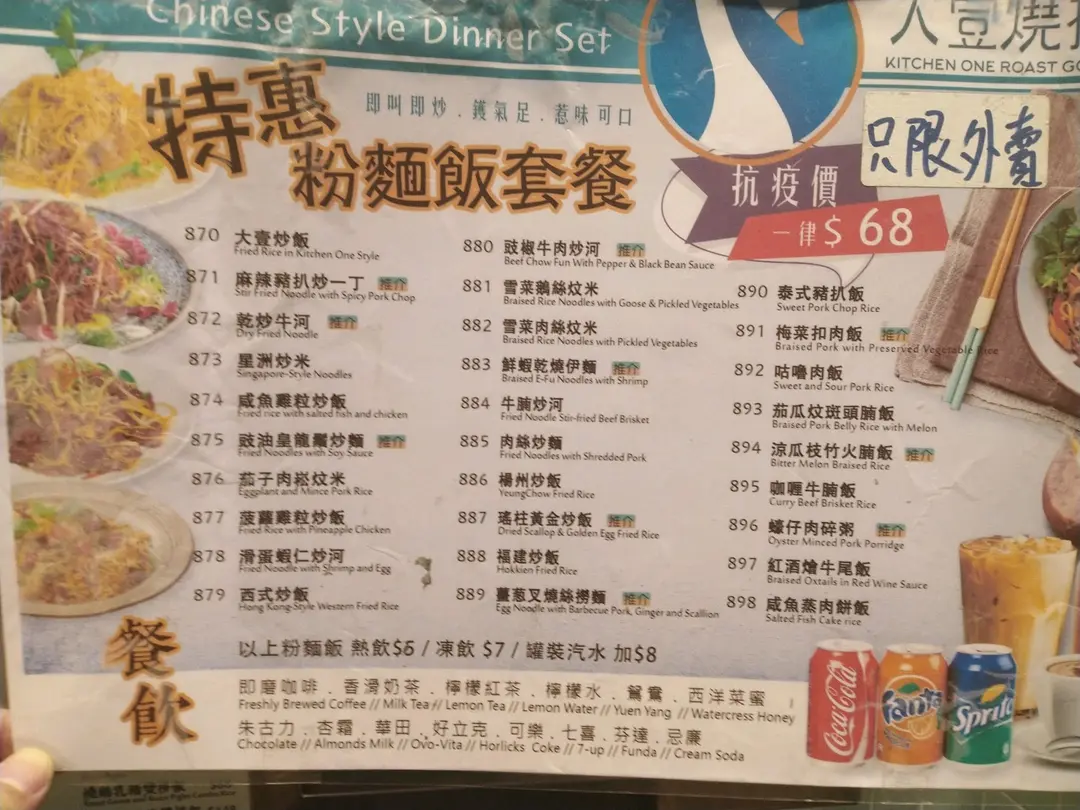 Chinese Style Dinner Set
大壹燒
KITCHEN ONE ROAST GO
特惠
即叫即炒.鑊氣足.惹味可口
粉麵飯套餐
只限外賣
抗疫價
一律$68
870 大壹炒飯
Fried Rice in Kitchen One Style
871 麻辣豬扒炒一丁 推介
Stir Fried Noodle with Spicy Pork Chop
872 乾炒牛河 推介
Dry Fried Noodle
873 星洲炒米
Singapore-Style Noodles
874 咸魚雞粒炒飯
Fried rice with salted fish and chicken
875 豉油皇龍鬚炒麵 推介
Fried Noodles with Soy Sauce
876 茄子肉崧炆米
Eggplant and Mince Pork Rice
877 菠蘿雞粒炒飯
Fried Rice with Pineapple Chicken
878 滑蛋蝦仁炒河
Fried Noodle with Shrimp and Egg
879 西式炒飯
Hong Kong-Style Western Fried Rice
880 豉椒牛肉炒河 推介
Beef Chow Fun With Pepper & Black Bean Sauce
881 雪菜鵝絲炆米
Braised Rice Noodles with Goose & Pickled Vegetables
882 雪菜肉絲炆米
Braised Rice Noodles with Pickled Vegetables
883 鮮蝦乾燒伊麵 推介
Braised E-Fu Noodles with Shrimp
884 牛腩炒河
Fried Noodle Stir-fried Beef Brisket
885 肉絲炒麵
Fried Noodles with Shredded Pork
886 楊州炒飯
YoungChow Fried Rice
887 瑤柱黃金炒飯 推介
Dried Scallop & Golden Egg Fried Rice
888 福建炒飯
Hokkien Fried Rice
889 薑葱叉燒絲撈麵 推介
Egg Noodle with Barbecue Pork, Ginger and Scallion
890 泰式豬扒飯
Sweet Pork Chop Rice
891 梅菜扣肉飯 推介
Braised Pork with Preserved Vegetable Rice
892 咕嚕肉飯
Sweet and Sour Pork Rice
893 茄瓜炆斑頭腩飯
Braised Pork Belly Rice with Melon
894 涼瓜枝竹火腩飯 推介
Bitter Melon Braised Rice
895 咖喱牛腩飯
Curry Beef Brisket Rice
896 蠔仔肉碎粥 推介
Oyster Minced Pork Porridge
897 紅酒燴牛尾飯
Braised Oxtails in Red Wine Sauce
898 咸魚蒸肉餅飯
Salted Fish Cake rice
餐飲
以上粉麵飯 熱飲$6 / 凍飲 $7 / 罐裝汽水 加$8
即磨咖啡.香滑奶茶.檸檬紅茶.檸檬水.鴛鴦.西洋菜蜜
Freshly Brewed Coffee // Milk Tea // Lemon Tea // Lemon Water // Yuen Yang // Watercress Honey
朱古力.杏霜.華田.好立克.可樂.七喜.芬達.忌廉
Chocolate // Almonds Milk // Ovo-Vita // Horlicks Coke // 7-up // Funda // Cream Soda
Coca-Cola
Fanta
Sprite